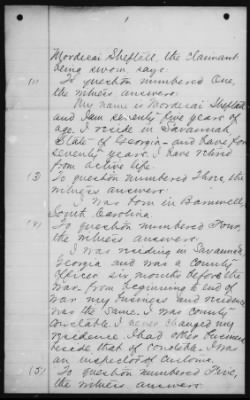 1
Mordecai Sheftall, the claimant
being sworn says:
(1) To question numbered One,
the witness answers:
My name is Mordecai Sheftall
and I am seventy five years of
age. I reside in Savannah
State of Georgia - and have for
seventy years. I have retired
from active life.
(3) To question numbered Three, the
witness answers:
I was born in Barnwell,
South Carolina
(4) To question numbered Four,
the witness answers:
I was residing in Savannah
Georgia and was a county
officer six months before the
war. From beginning to end of
war my business and residence
was the same. I was county
constable. I never changed my
residence. I had other business
beside that of constable. I was
an inspector of customs.
(5) To question numbered Five,
the witness answers: